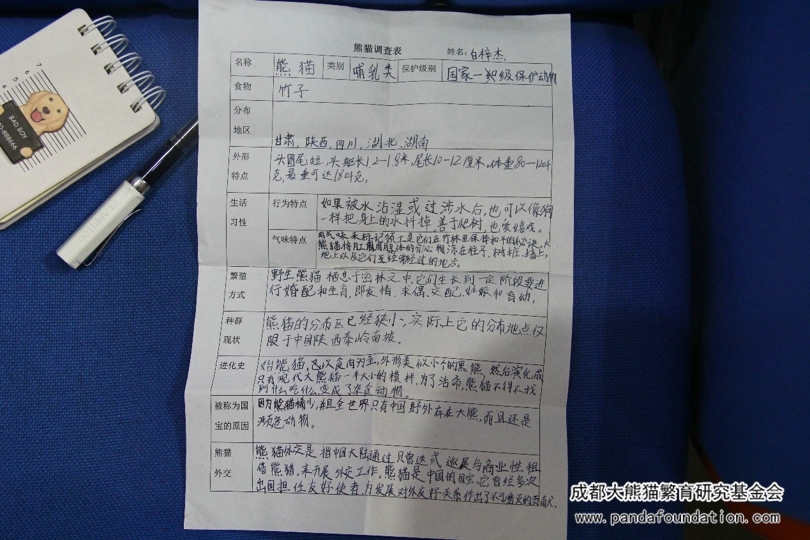 熊猫调查表 姓名：白梓杰
名称 熊猫 类别 哺乳类 保护级别 国家一级保护动物
食物 竹子
分布
地区 甘肃，陕西，四川，湖北，湖南
外形 头圆尾短，头躯长1.2—1.8米，尾长10—12厘米。体重80—120千
特点 克，最重可达180千克。
生活 行为特点 如果被水沾湿或过涉水后，也可以像狗
一样把身上的水抖掉 善于爬树，也爱嬉戏。
习性 气味特点 用气味来标记领土是它们在竹林里保持和平的秘诀，大
熊猫将肛周腺体的分泌物涂在柱子、树桩、墙上，
地上以及它们经常经过的地方。
繁殖 野生熊猫栖息于山林之中，它们生长到一定阶段要进
方式 行婚配和生育，即发情、求偶、交配、妊娠和育幼。
种群 熊猫的分布区已经狭小，实际上它的分布地点仅
现状 限于中国陕西秦岭南坡。
进化史 始熊猫，已以食肉为主，外形类似小个的黑熊 然后演化成
只有现代大熊猫一半大小的模样，为了活命，熊猫不得不找
到什么吃什么，变成了杂食动物
被称为国 因为熊猫稀少，并且全世界只有中国野外存在大熊，而且还是
宝的原因 濒危动物。
熊猫 熊猫外交是指中国大陆通过只曾送式 巡展与商业性租
借熊猫，来开展外交工作。熊猫是中国的国宝，它曾经多次
外交 出国担任友好使者，为发展对外友好关系作出了不可磨灭的贡献。
BAD BOY
成都大熊猫繁育研究基金会
www.pandafoundation.com